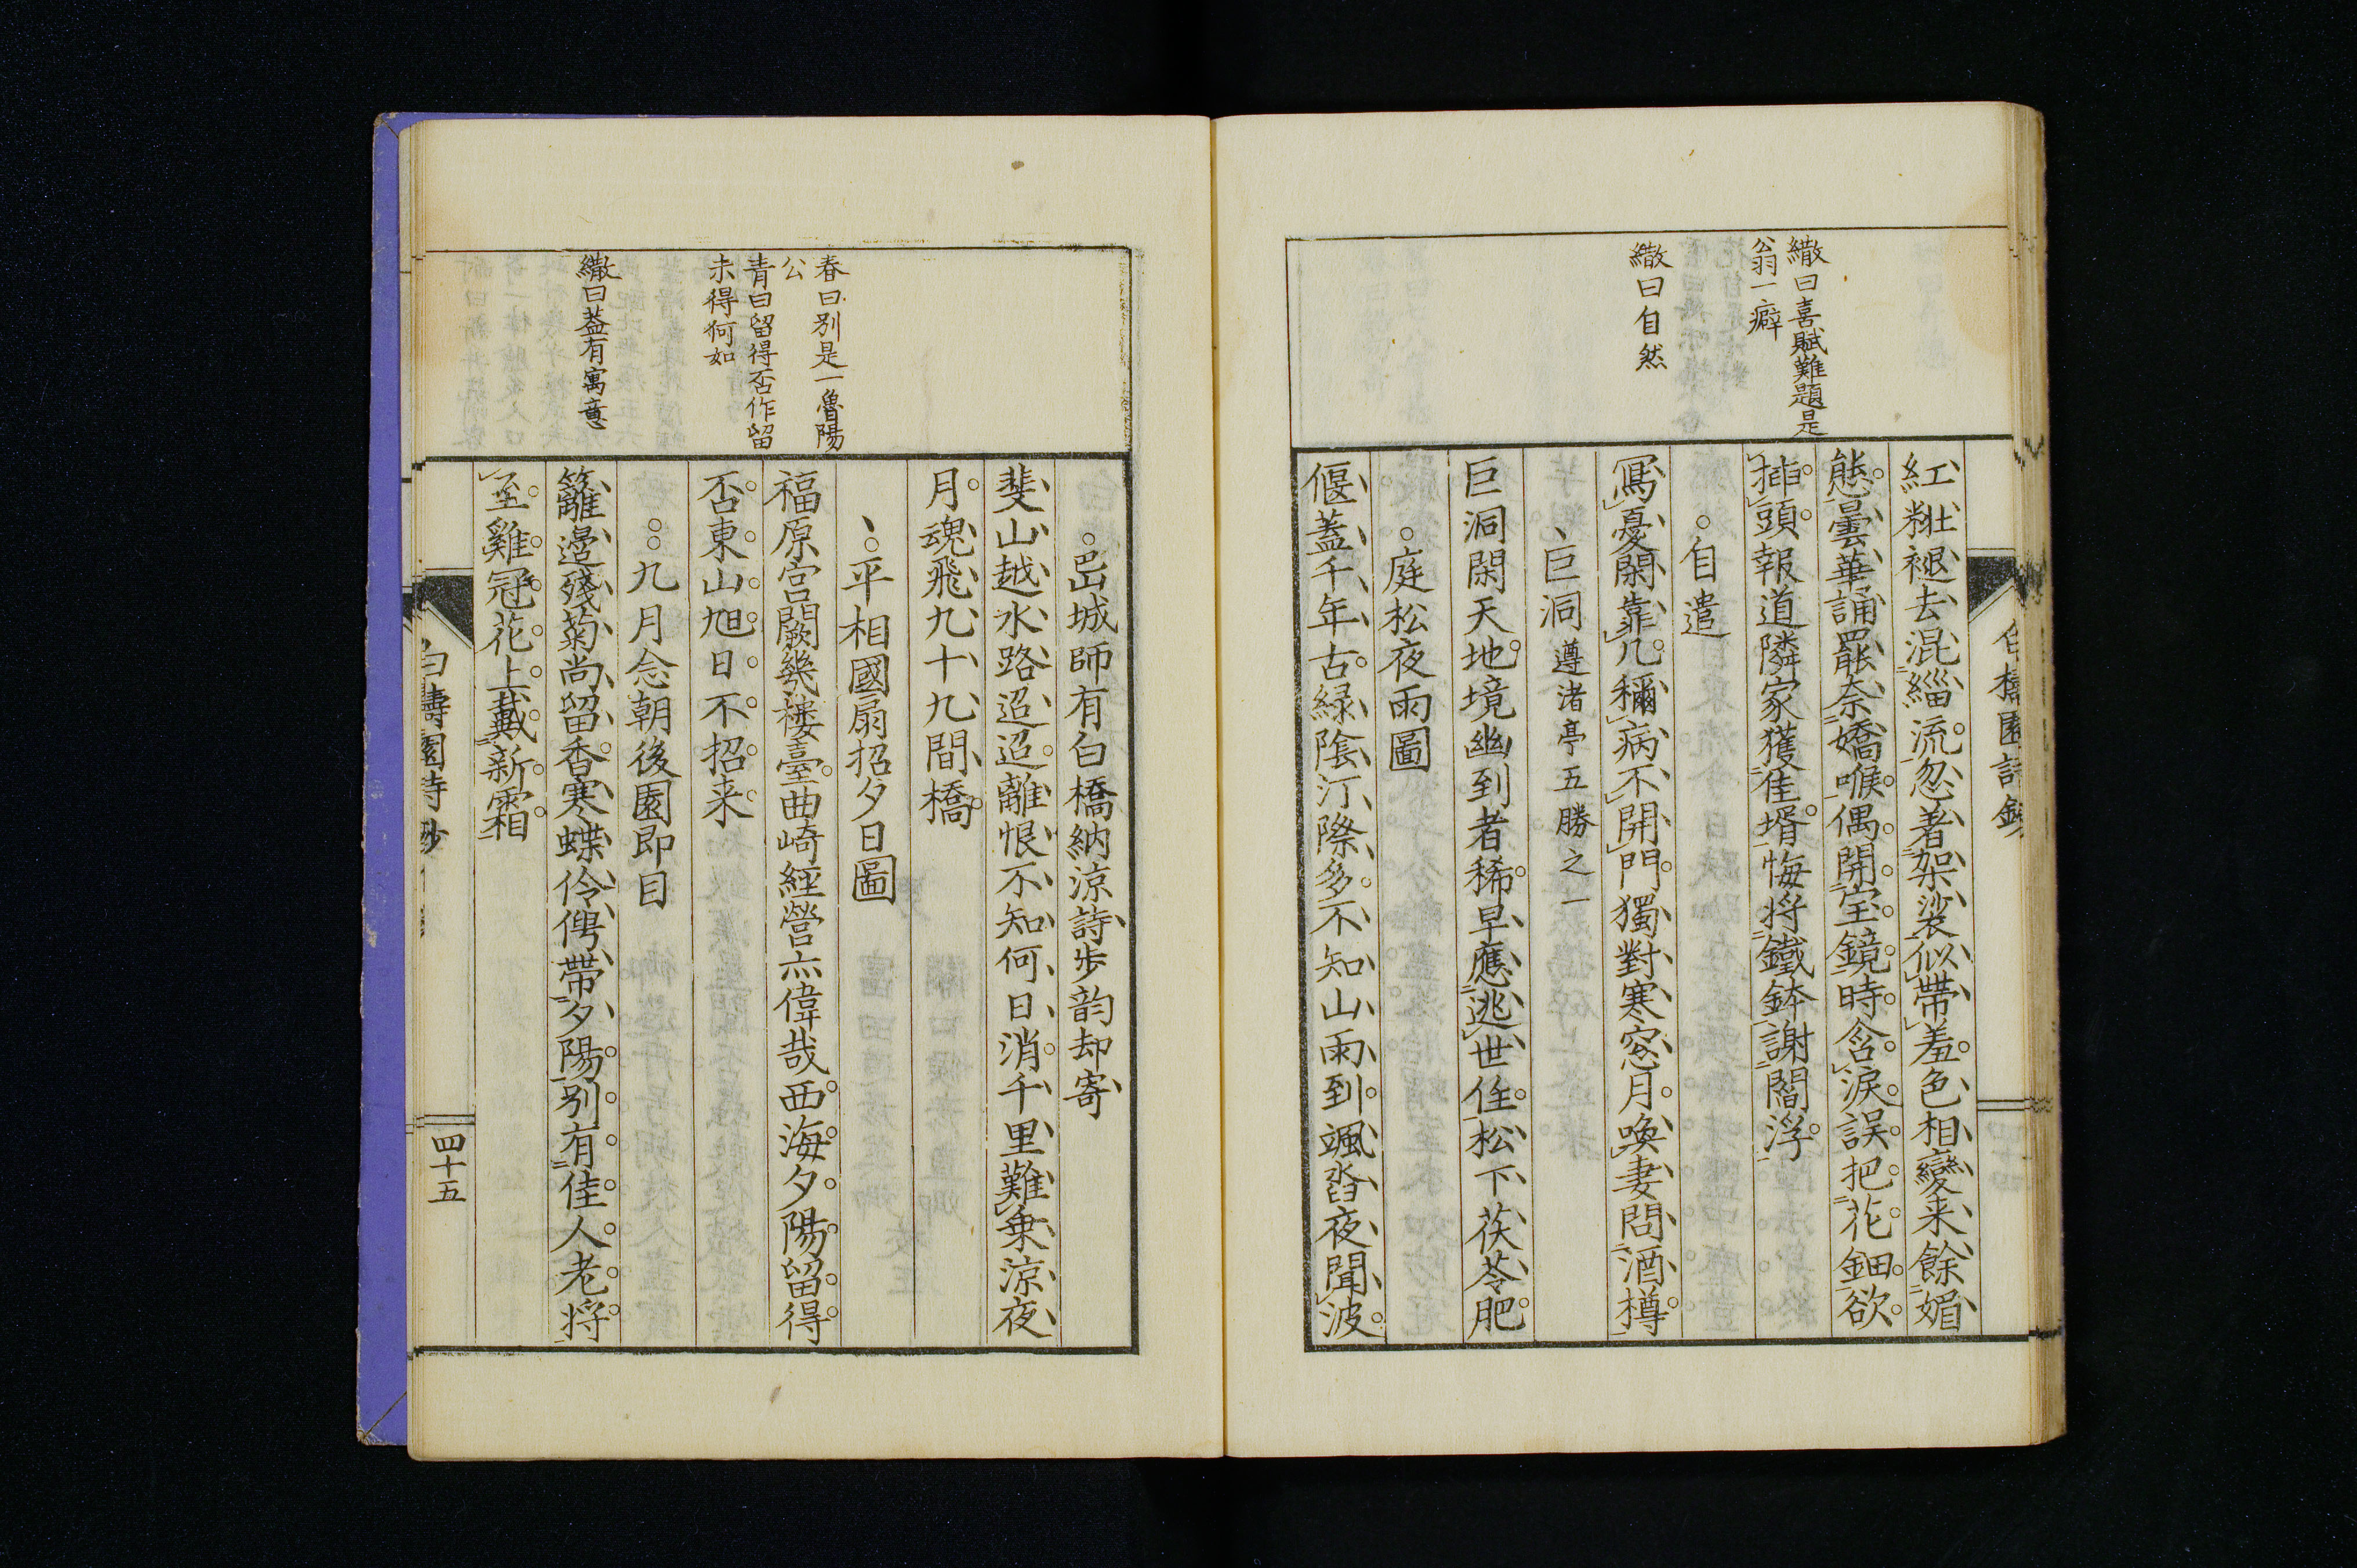 繖曰喜賦難題是
翁一癖
繖曰自然
紅粧褪去混緇流忽著架裟似帶羞色相變来餘媚
態曇華誦罷奈嬌喉偶開宝鏡時含淚誤把花鈿欲
挿頭報道隣家獲佳壻悔将鐵鉢謝閻浮
自遣
寫憂閑靠几穪病不開門獨對寒窓月喚妻問酒樽
巨洞遵渚亭五勝之一
巨洞閑天地境幽到者稀早應逃世住松下茯苓肥
庭松夜雨圖
偃蓋千年古緑陰汀際多不知山雨到颯沓夜聞波
春曰別是一魯陽
公
青曰留得否作留
未得何如
繖曰葢有寓意
邑城師有白橋納涼詩步韵却寄
斐山越水路迢迢離恨不知何日消千里難乗涼夜
月魂飛九十九間橋
平相國扇招夕日圖
福原宫闕幾樓臺曲崎經營亦偉哉西海夕陽留得
否東山旭日不招来
九月念朝後園即目
籬邉殘菊尚留香寒蝶伶俜帶夕陽別有佳人老将
至雞冠花上戴新霜
四十五